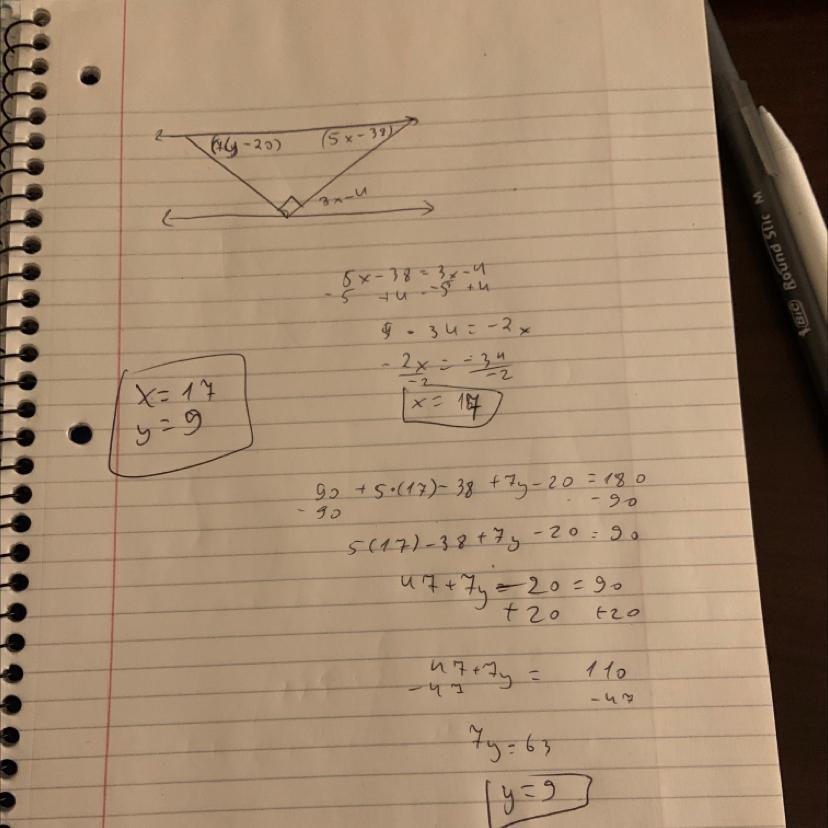 (7y-20) (5x-38)
3x-4
5x-38=3x-4
-5 +4 -5 +4
-34=-2x
-2x = -34
-2 -2
x= 17
x=17
y=9
90 +5·(17)-38 +7y-20 =180
-90 -90
5(17)-38+7y -20 = 90
47+7y-20=90
+20 +20
47+7y = 110
-47 -47
7y=63
y=9
BIC Round Stic M